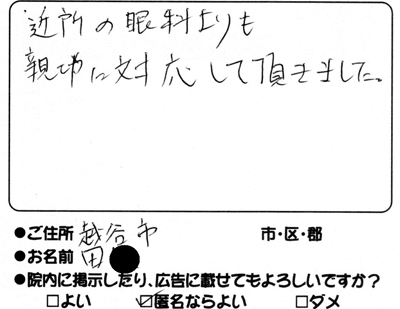 近所の眼科よりも
親切に対応して頂きました。
●ご住所 越谷市 市・区・郡
●お名前 田
●院内に掲示したり、広告に載せてもよろしいですか?
□よい ☑匿名ならよい □ダメ